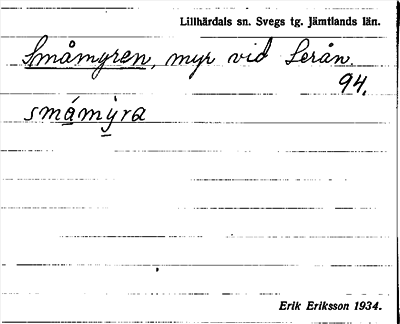 Lillhärdals sn. Svegs tg. Jämtlands län.
Småmyren, myr vid Serån.
94.
småmýra
Erik Eriksson 1934.